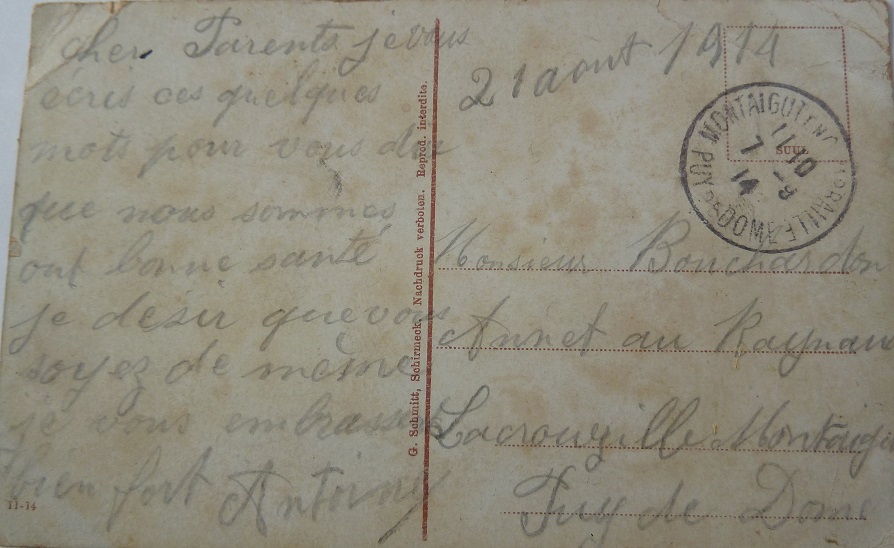 cher Parents je vous
écris ces quelques
mots pour vous dir
que nous sommes
out bonne santé
je désir que vous
soyez de même
je vous embrasse
bien fort Antoine
11-14
G. Schmitt, Schirmeck. Nachdruck verboten. Reprod. interdite.
21 août 1914
MONTAIGUT EN COMBRAILLE
PUY-DE-DOME
11-10
7 -9
14
Monsieur Bouchardon
Annet au Raynau
Lacrouzille Montaigu
Puy de Dome